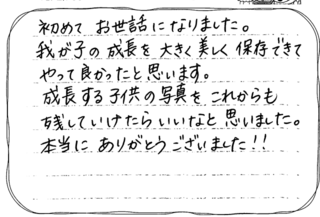 初めて お世話になりました。
我が子の成長を大きく美しく保存できて
やって良かったと思います。
成長する子供の写真をこれからも
残していけたらいいなと思いました。
本当に ありがとうございました!!